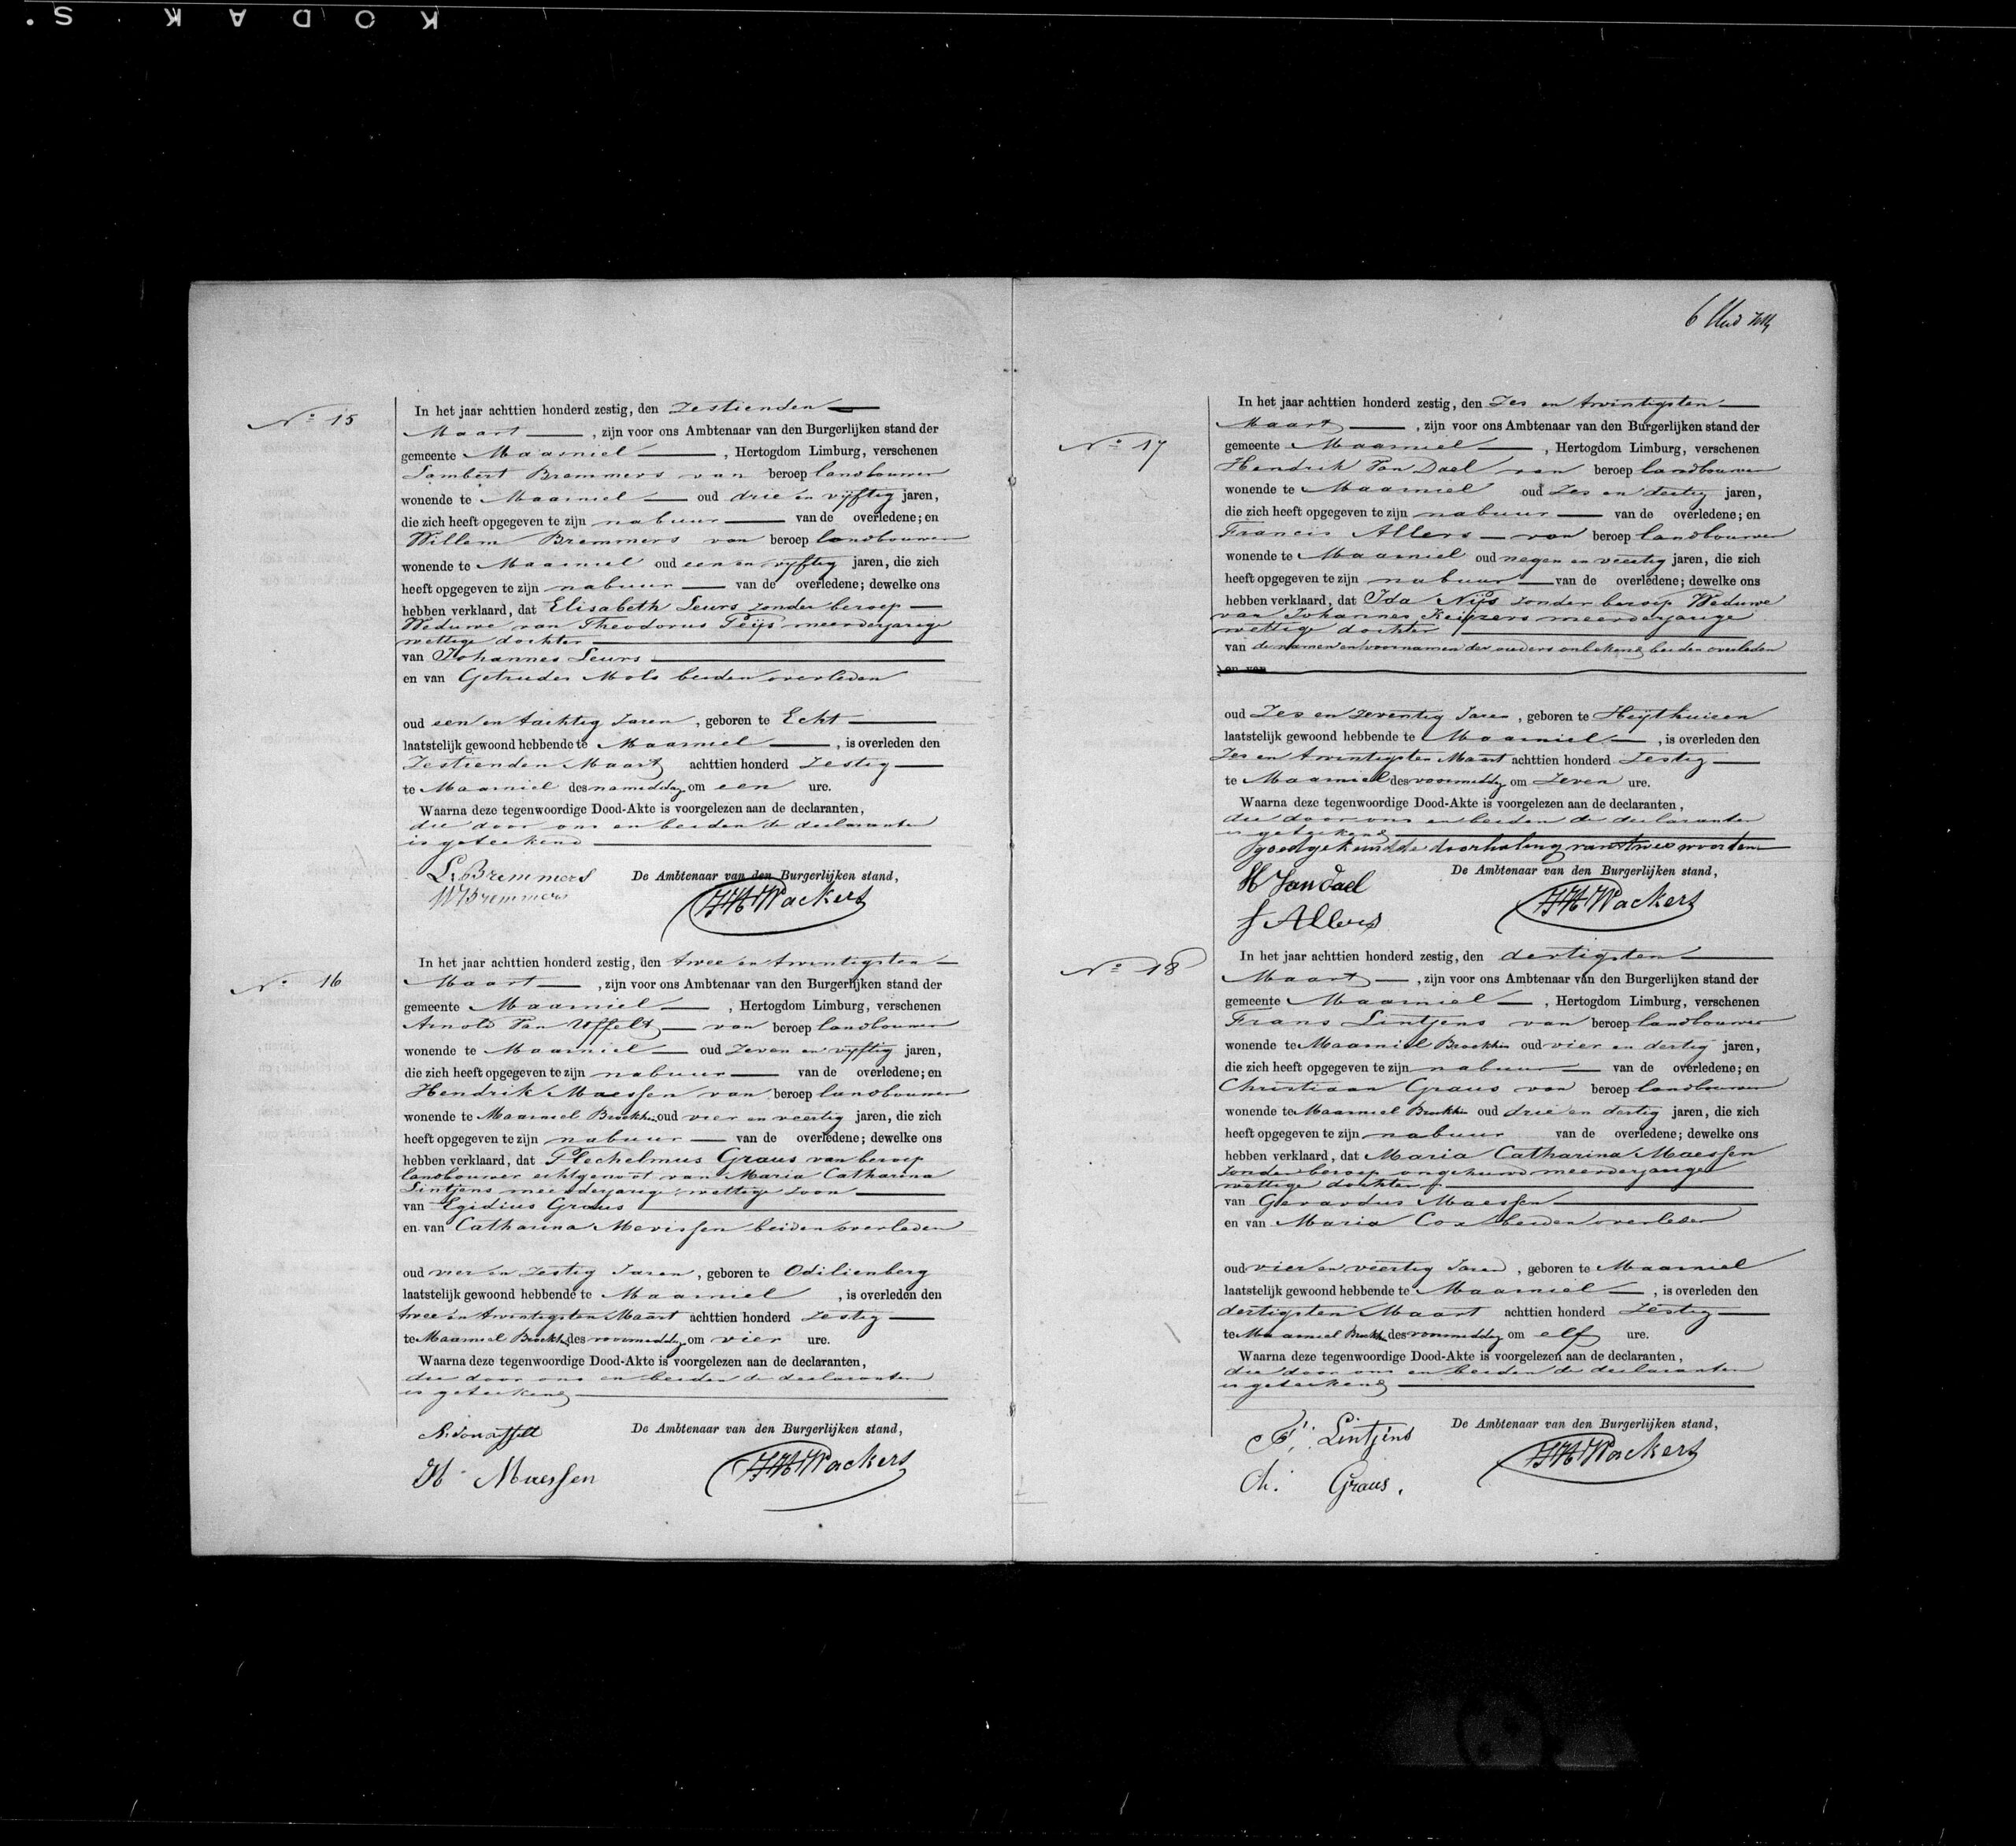 KODAK . S .
6
N° 15
In het jaar achttien honderd zestig, den Zestienden
Maart, zijn voor ons Ambtenaar van den Burgerlijken stand der
gemeente Maasniel, Hertogdom Limburg, verschenen
Lambert Bremmers van beroep landbouwer
wonende te Maasniel oud drie en vijftig jaren,
die zich heeft opgegeven te zijn nabuur van de overledene; en
Willem Bremmers van beroep landbouwer
wonende te Maasniel oud een en vijftig jaren, die zich
heeft opgegeven te zijn nabuur van de overledene; dewelke ons
hebben verklaard, dat Elisabeth Leurs zonder beroep
Weduwe van Theodorus Peijs meerderjarige
wettige dochter
van Johannes Leurs
en van Getrudes Mols beiden overleden
oud een en tachtig Jaren, geboren te Echt
laatstelijk gewoond hebbende te Maasniel, is overleden den
Zestienden Maart achttien honderd Zestig
te Maasniel des namiddag om een ure.
Waarna deze tegenwoordige Dood-Akte is voorgelezen aan de declaranten,
die door ons en beiden de declaranten
is geteekend
De Ambtenaar van den Burgerlijken stand,
L. Bremmers
W Bremmers
JH Wackers
N° 16
In het jaar achttien honderd zestig, den twee en twintigsten
Maart, zijn voor ons Ambtenaar van den Burgerlijken stand der
gemeente Maasniel, Hertogdom Limburg, verschenen
Arnold Van Uffelt van beroep landbouwer
wonende te Maasniel oud Zeven en vijftig jaren,
die zich heeft opgegeven te zijn nabuur van de overledene; en
Hendrik Maessen van beroep landbouwer
wonende te Maasniel Broekhin oud vier en veertig jaren, die zich
heeft opgegeven te zijn nabuur van de overledene; dewelke ons
hebben verklaard, dat Plechelmus Graus van beroep
landbouwer echtgenoot van Maria Catharina
Lintjens meerderjarige wettige zoon
van Egidius Graus
en van Catharina Mevissen beiden overleden
oud vier en zestig Jaren, geboren te Odilienberg
laatstelijk gewoond hebbende te Maasniel, is overleden den
twee en twintigsten Maart achttien honderd Zestig
te Maasniel Broekh. des voormiddag om vier ure.
Waarna deze tegenwoordige Dood-Akte is voorgelezen aan de declaranten,
die door ons en beiden de declaranten
is geteekend
De Ambtenaar van den Burgerlijken stand,
A. van uffelt
H Maessen
JH Wackers
N° 17
In het jaar achttien honderd zestig, den Zes en twintigsten
Maart, zijn voor ons Ambtenaar van den Burgerlijken stand der
gemeente Maasniel, Hertogdom Limburg, verschenen
Hendrik Van Dael van beroep landbouwer
wonende te Maasniel oud Zes en dertig jaren,
die zich heeft opgegeven te zijn nabuur van de overledene; en
Francis Allers van beroep landbouwer
wonende te Maasniel oud negen en veertig jaren, die zich
heeft opgegeven te zijn nabuur van de overledene; dewelke ons
hebben verklaard, dat Ida Nijs zonder beroep Weduwe
van Johannes Keijzers meerderjarige
wettige dochter
van de namen en voornamen der ouders onbekend beiden overleden
en van
oud Zes en zeventig Jaren, geboren te Heijthuisen
laatstelijk gewoond hebbende te Maasniel, is overleden den
Zes en twintigsten Maart achttien honderd Zestig
te Maasniel des voormiddag om Zeven ure.
Waarna deze tegenwoordige Dood-Akte is voorgelezen aan de declaranten,
die door ons en beiden de declaranten
is geteekend
goedgekeurd de doorhaling van twee woorden
De Ambtenaar van den Burgerlijken stand,
H Van Dael
f Allers
JH Wackers
N° 18
In het jaar achttien honderd zestig, den dertigsten
Maart, zijn voor ons Ambtenaar van den Burgerlijken stand der
gemeente Maasniel, Hertogdom Limburg, verschenen
Frans Lintjens van beroep landbouwer
wonende te Maasniel Broekhin oud vier en dertig jaren,
die zich heeft opgegeven te zijn nabuur van de overledene; en
Christiaan Graus van beroep landbouwer
wonende te Maasniel Broekhin oud drie en dertig jaren, die zich
heeft opgegeven te zijn nabuur van de overledene; dewelke ons
hebben verklaard, dat Maria Catharina Maessen
zonder beroep ongehuwd meerderjarige
wettige dochter
van Gerardus Maessen
en van Maria Cox beiden overleden
oud vier en veertig Jaren, geboren te Maasniel
laatstelijk gewoond hebbende te Maasniel, is overleden den
dertigsten Maart achttien honderd Zestig
te Maasniel Broekhin des voormiddag om elf ure.
Waarna deze tegenwoordige Dood-Akte is voorgelezen aan de declaranten,
die door ons en beiden de declaranten
is geteekend
De Ambtenaar van den Burgerlijken stand,
F. Lintjens
Ch. Graus.
JH Wackers